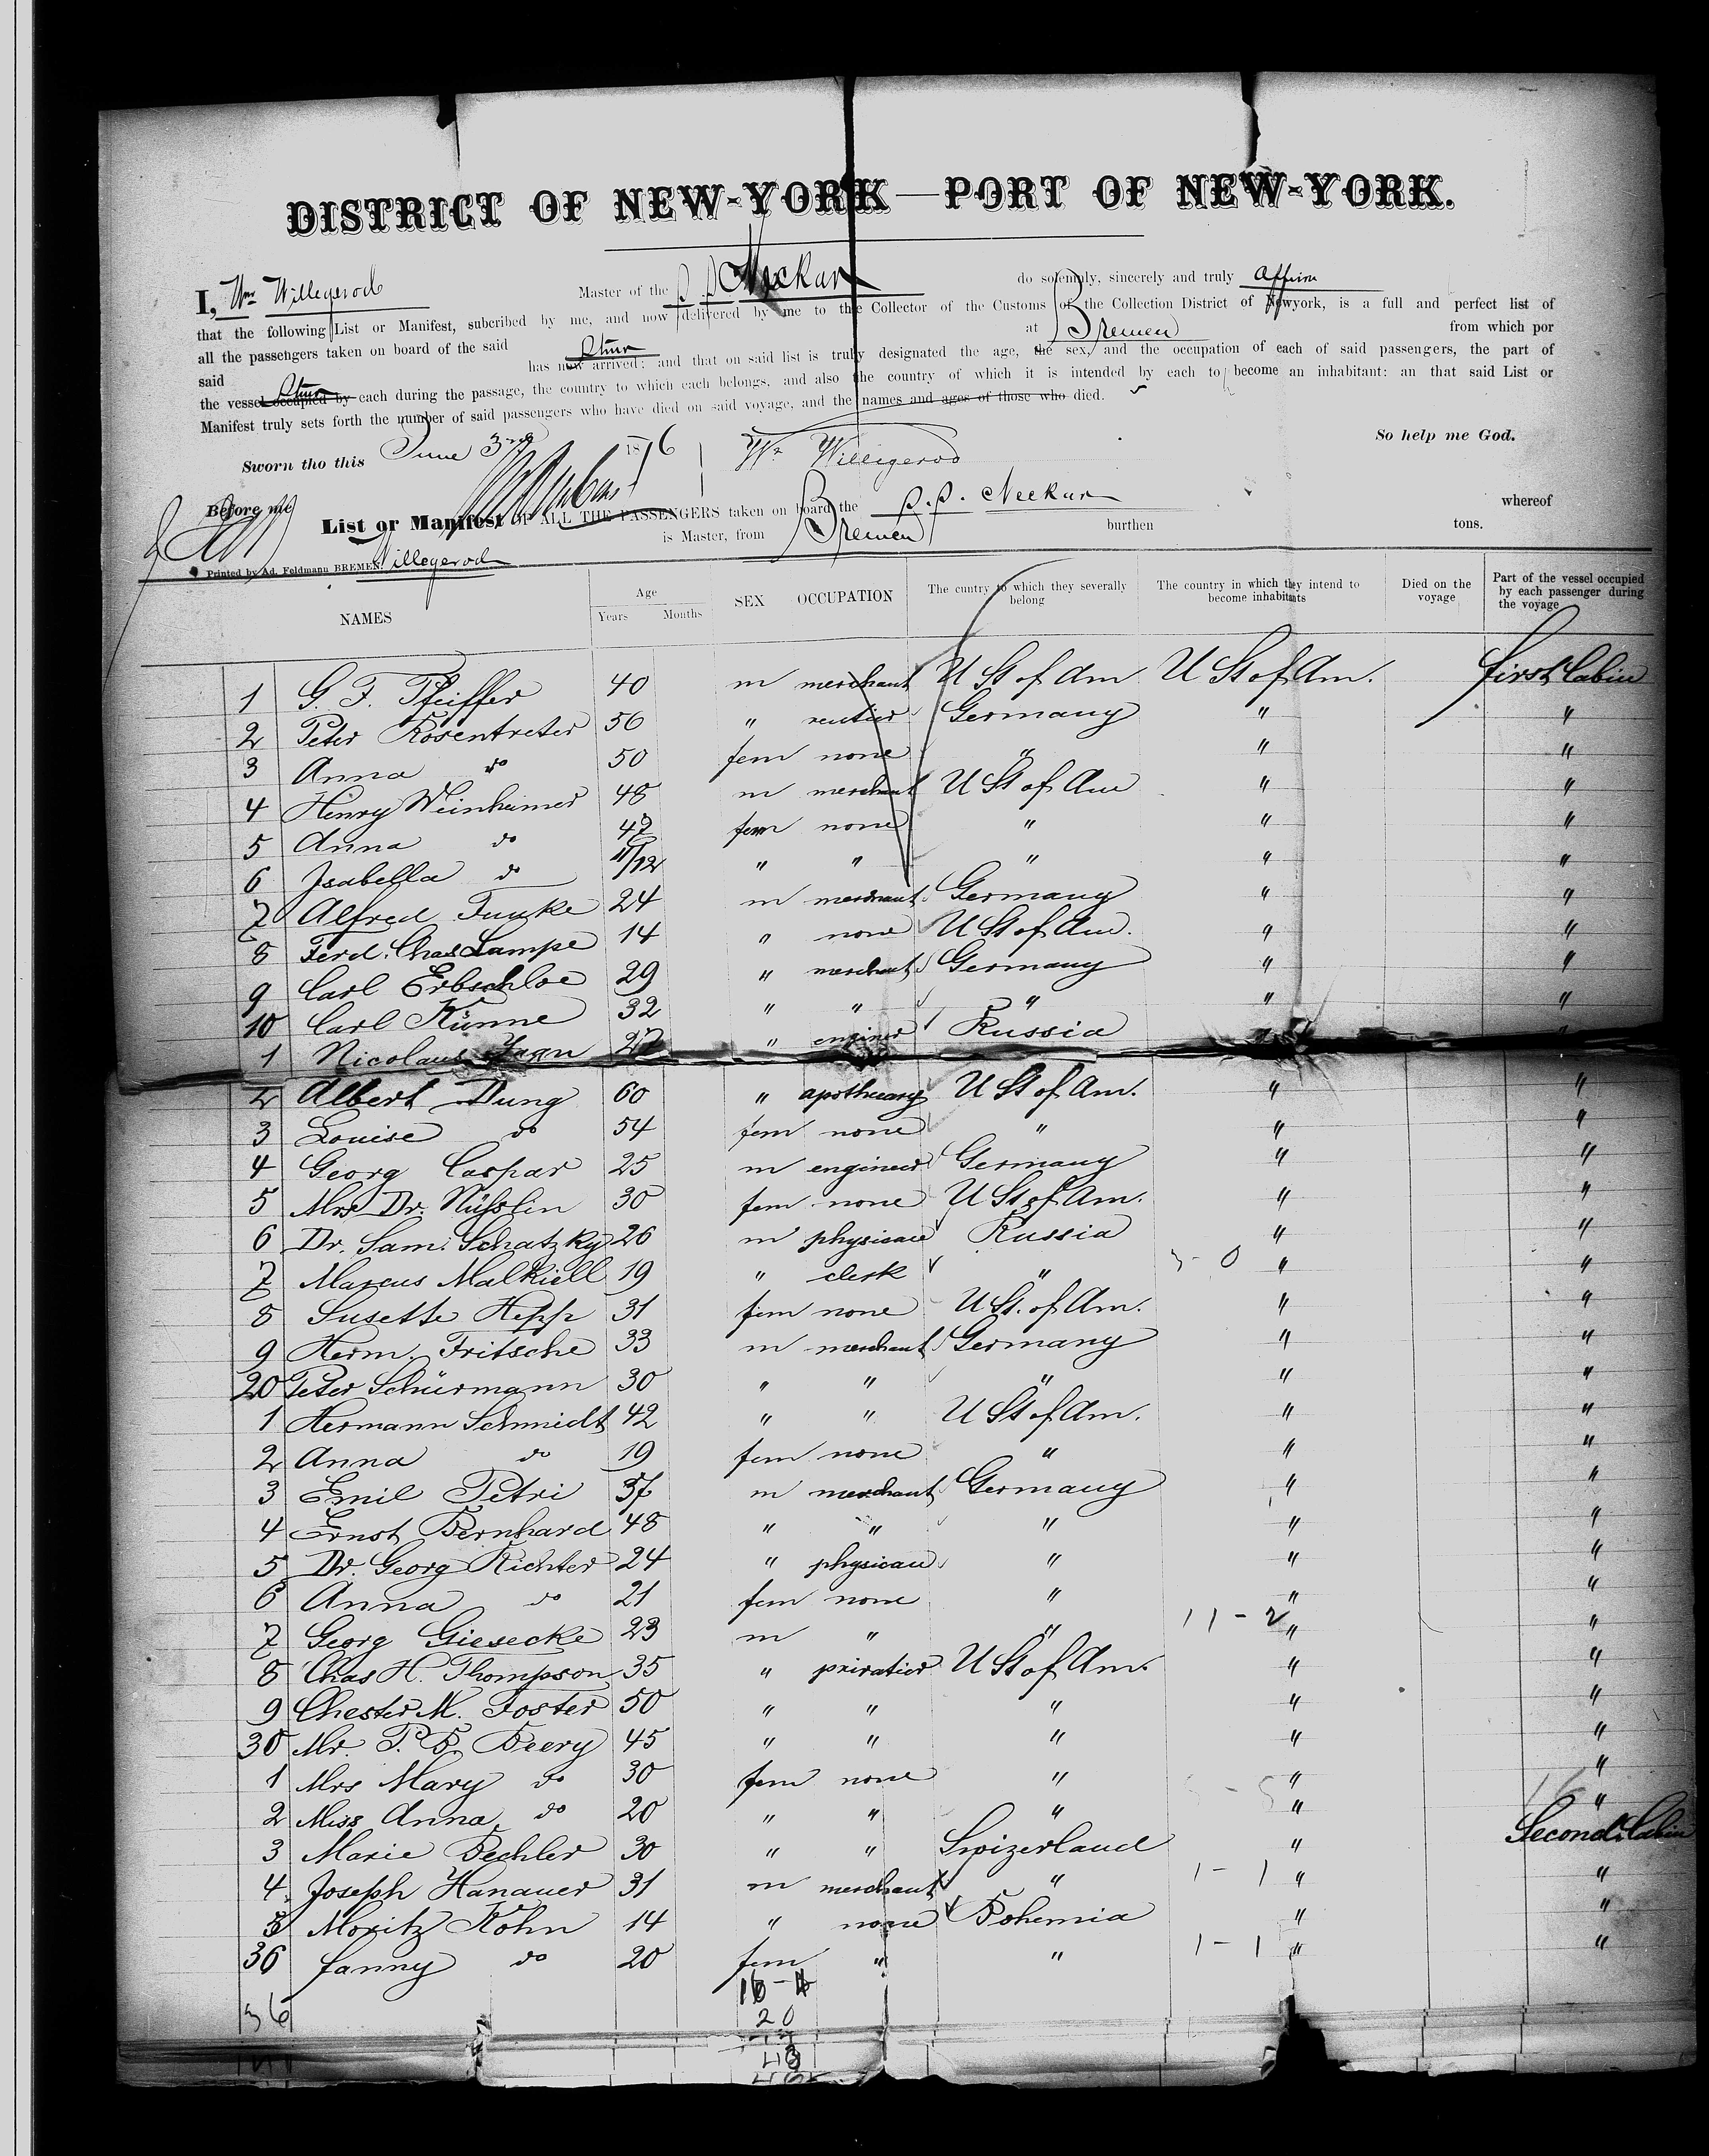 DISTRICT OF NEW-YORK—PORT OF NEW-YORK.
I, Wm Willegerod Master of the S.S. Neckar do solemnly, sincerely and truly affirm
that the following List or Manifest, subcribed by me, and now delivered by me to the Collector of the Customs of the Collection District of Newyork, is a full and perfect list of
all the passengers taken on board of the said at Bremen from which por
said has now arrived; and that on said list is truly designated the age, the sex, and the occupation of each of said passengers, the part of
the vessel occupied by each during the passage, the country to which each belongs, and also the country of which it is intended by each to become an inhabitant: an that said List or
Manifest truly sets forth the number of said passengers who have died on said voyage, and the names and ages of those who died.
So help me God.
Sworn tho this June 3rd 1876 Wm Willigerod
Before me
List or Manifest OF ALL THE PASSENGERS taken on board the S.S. Neckar whereof
Willegerod is Master, from Bremen burthen tons.
Printed by Ad. Feldmann BREMEN.
NAMES Age Years Months SEX OCCUPATION The cuntry to which they severally belong The country in which they intend to become inhabitants Died on the voyage Part of the vessel occupied by each passenger during the voyage
1 G. F. Pfeiffer 40 m merchant U St of Am U St of Am. first Cabin
2 Peter Rosentreter 56 " rentier Germany " "
3 Anna do 50 fem none " " "
4 Henry Weinheimer 48 m merchant U St of Am " "
5 Anna do 42 fem none " " "
6 Isabella do 11/12 " " " " "
7 Alfred Funke 24 m merchant Germany " "
8 Ferd. Chas Lampe 14 " none U St of Am. " "
9 Carl Erbschloe 29 " merchant Germany " "
10 Carl Künne 32 " " " " "
1 Nicolaus 27 " enginer Russia " "
2 Albert Dung 60 " apothecary U St of Am. " "
3 Louise do 54 fem none " " "
4 Georg Caspar 25 m engineer Germany " "
5 Mrs Dr. Nüsslin 30 fem none U St of Am. " "
6 Dr. Sam. Schatzky 26 m physician Russia " "
7 Marcus Malkiell 19 " clerk " " "
8 Susette Hepp 31 fem none U St. of Am. " "
9 Herm. Fritsche 33 m merchant Germany " "
20 Peter Schürmann 30 " " " " "
1 Hermann Schmidt 42 " " U St of Am. " "
2 Anna do 19 fem none " " "
3 Emil Petri 37 m merchant Germany " "
4 Ernst Bernhard 48 " " " " "
5 Dr. Georg Richter 24 " physician " " "
6 Anna do 21 fem none " " "
7 Georg Giesecke 23 m " " 11-2 " "
8 Chas H. Thompson 35 " privatier U St of Am. " "
9 Chester M. Foster 50 " " " " "
30 Mr. P. B. Beery 45 " " " " "
1 Mrs Mary do 30 fem none " " "
2 Miss Anna do 20 " " " " "
3 Marie Bechler 30 " " Swizerland " Second Cabin
4 Joseph Hanauer 31 m merchant " 1-1 " "
5 Moritz Kohn 14 " none Bohemia " "
36 Fanny do 20 fem " " 1-1 " "
36
20